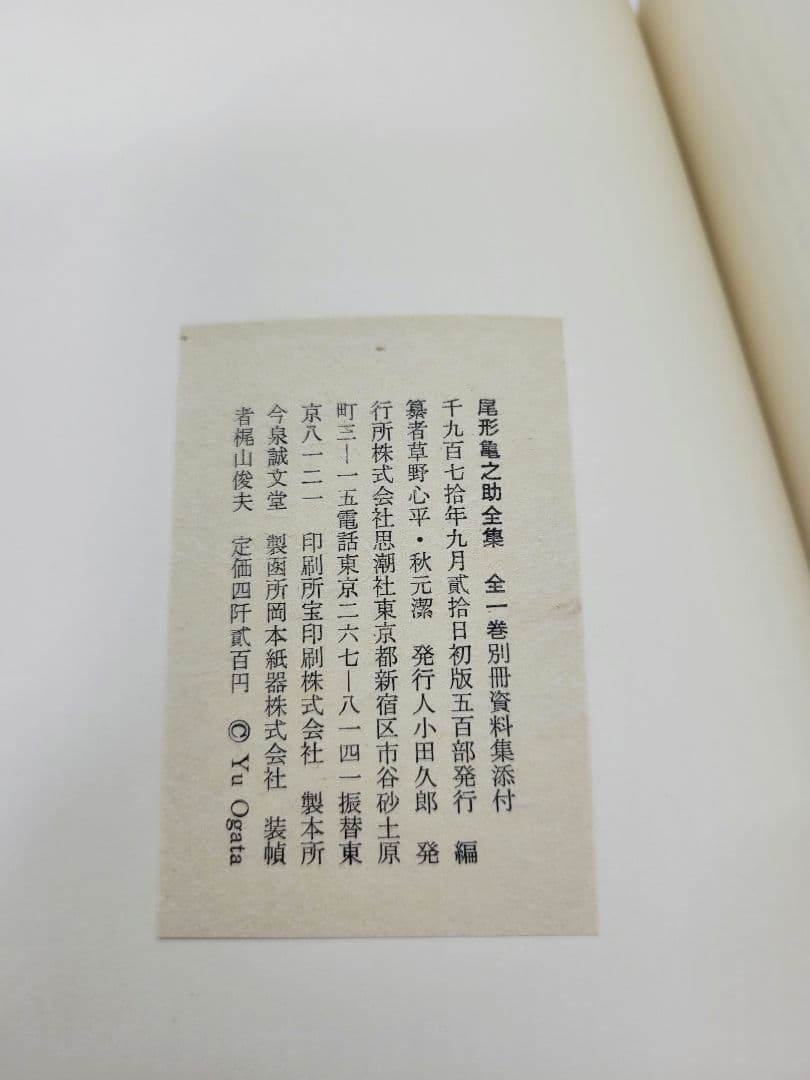 尾形亀之助全集　全一巻別冊資料集添付
千九百七拾年九月貳拾日初版五百部発行　編
纂者草野心平・秋元潔　発行人小田久郎　発
行所株式会社思潮社東京都新宿区市谷砂土原
町三―一五電話東京二六七―八一四一振替東
京八一二一　印刷所宝印刷株式会社　製本所
今泉誠文堂　製函所岡本紙器株式会社　装幀
者梶山俊夫　定価四阡貳百円　© Yu Ogata